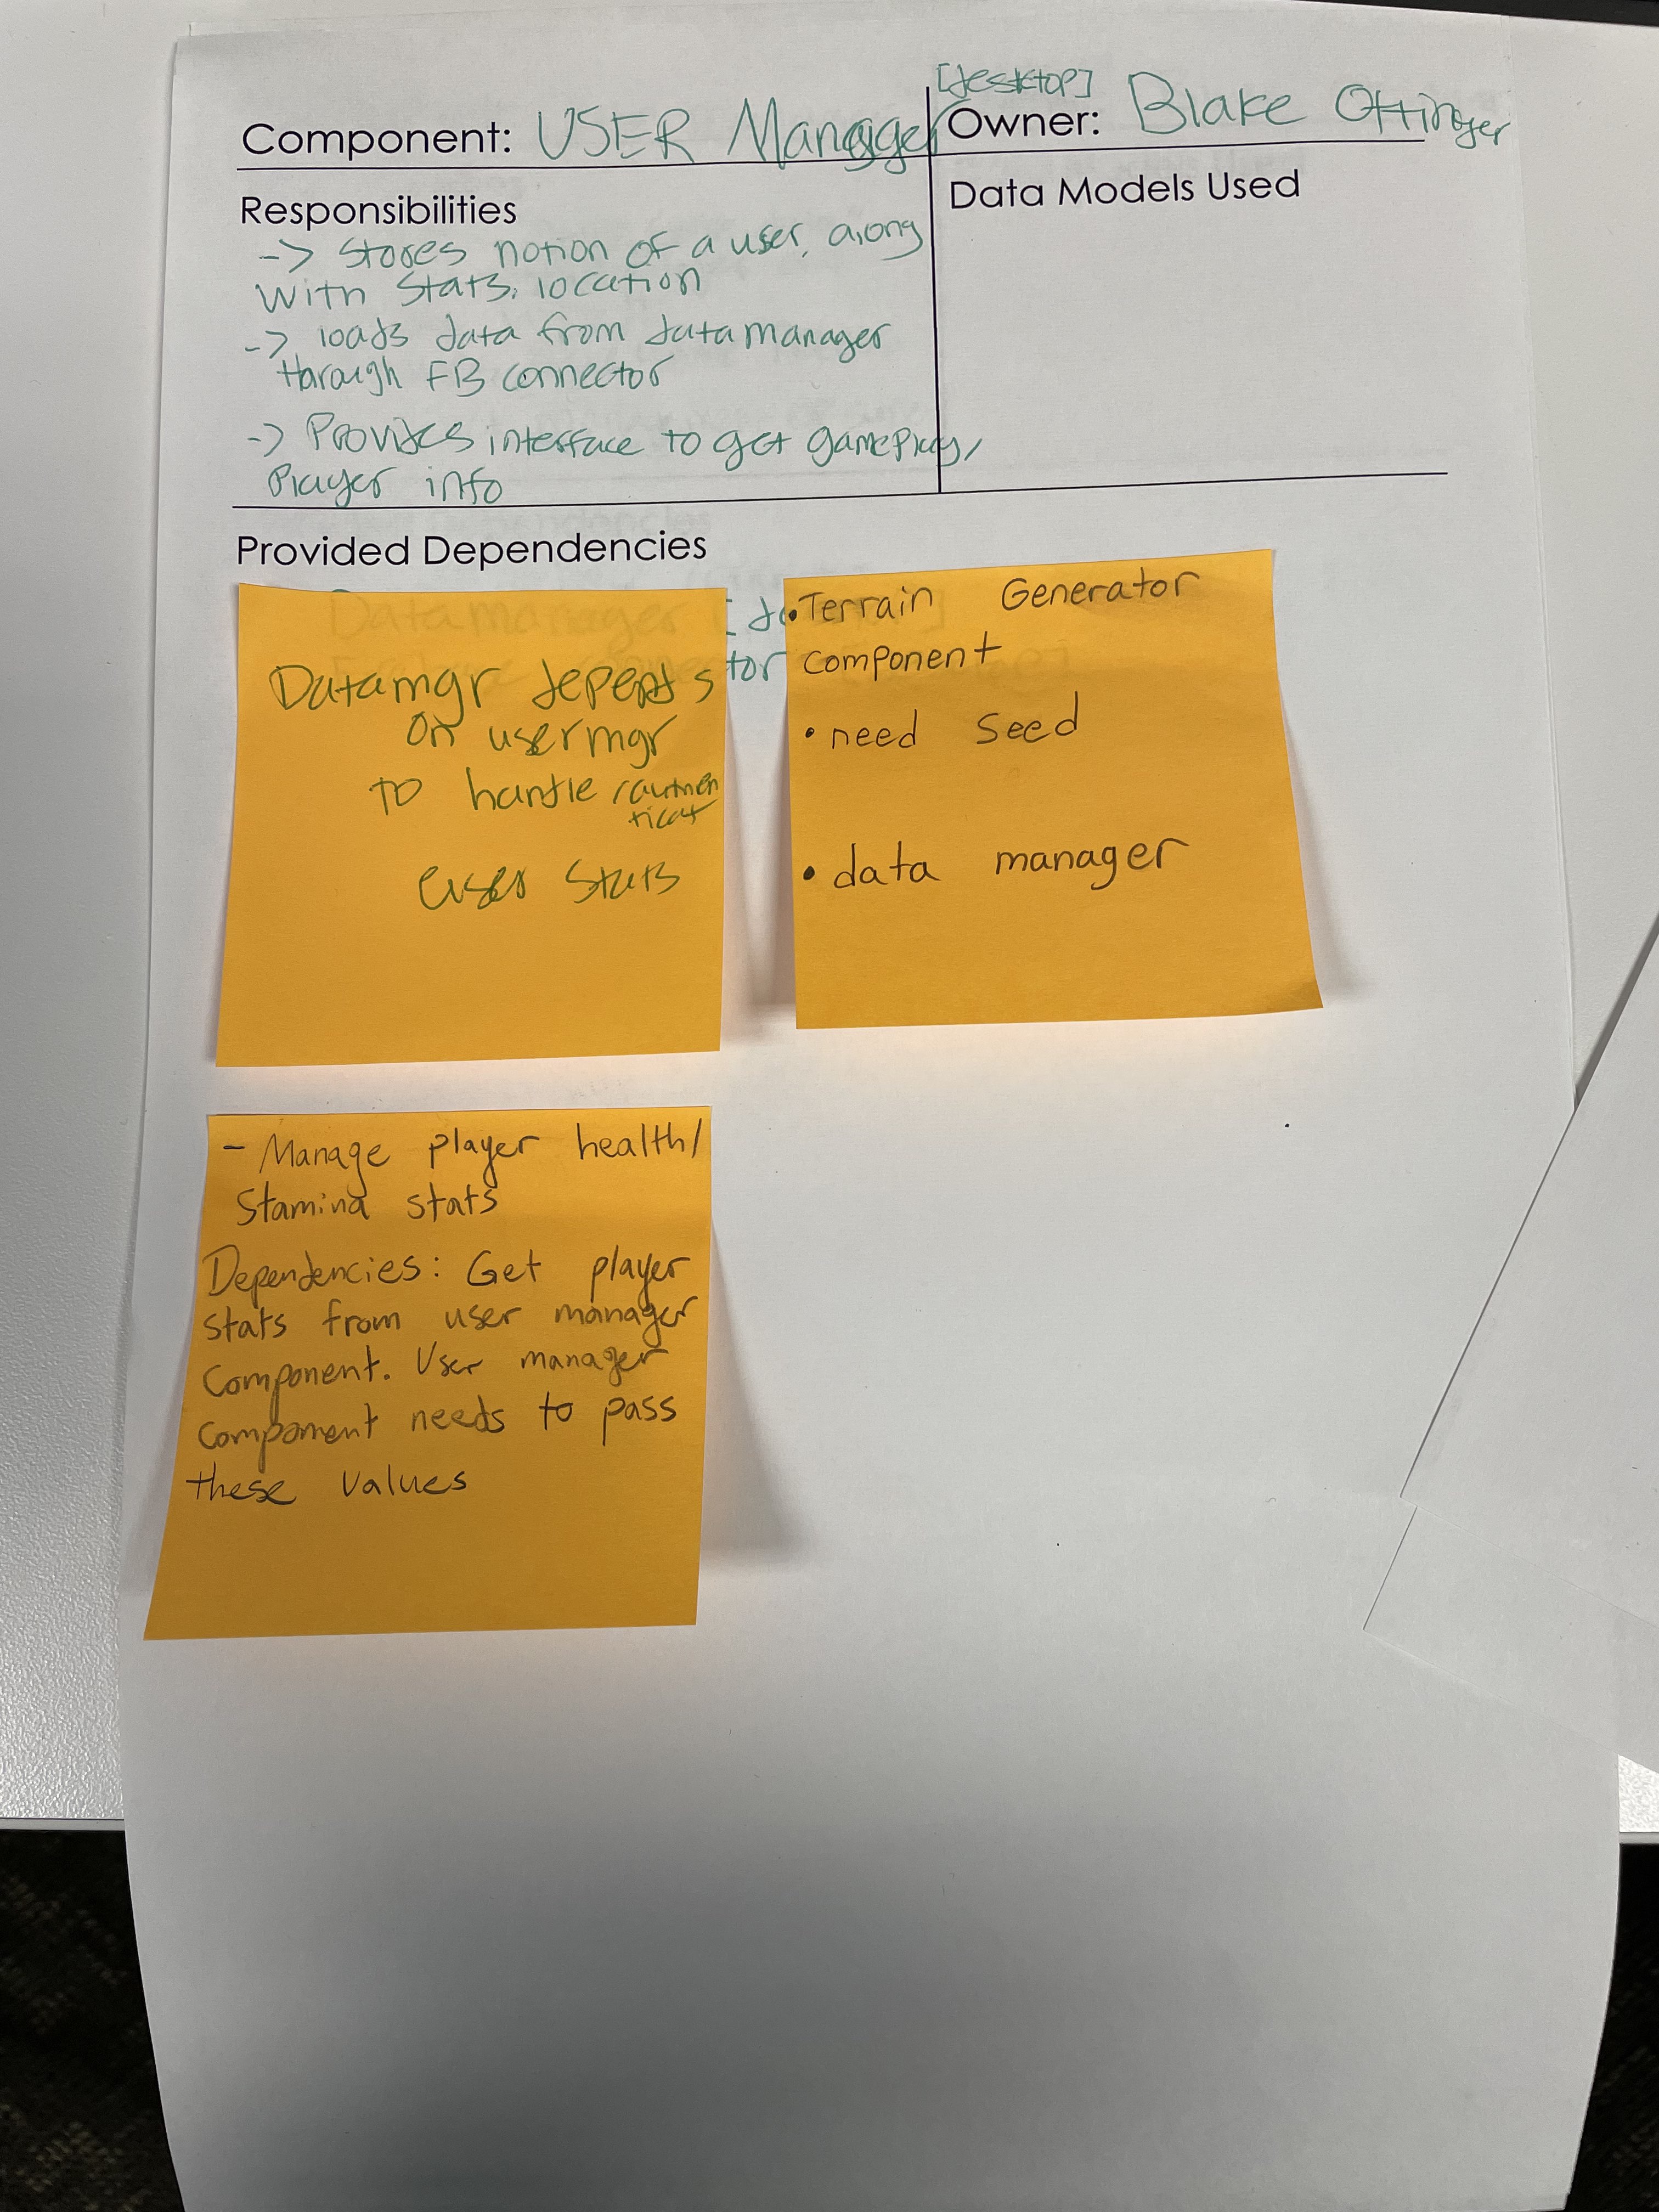 [desktop]
Component: USER Manager
Owner: Blake Ottinger
Responsibilities
-> stores notion of a user, along
with stats, location
-> loads data from datamanager
through FB connector
-> Provides interface to get gameplay/
Player info
Data Models Used
Provided Dependencies
Datamanager
tor
Datamgr depends
on usermgr
to handle
user stats
• Terrain Generator
component
• need seed
• data manager
- Manage player health/
Stamina stats
Dependencies: Get player
stats from user manager
Component. User manager
Component needs to pass
these values